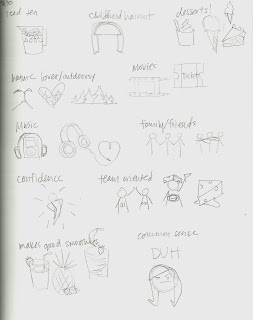 iced tea
childhood haircut
desserts!
movies
Tickets
music
family/friends
confidence
team oriented
makes good smoothies
common sense
DUH